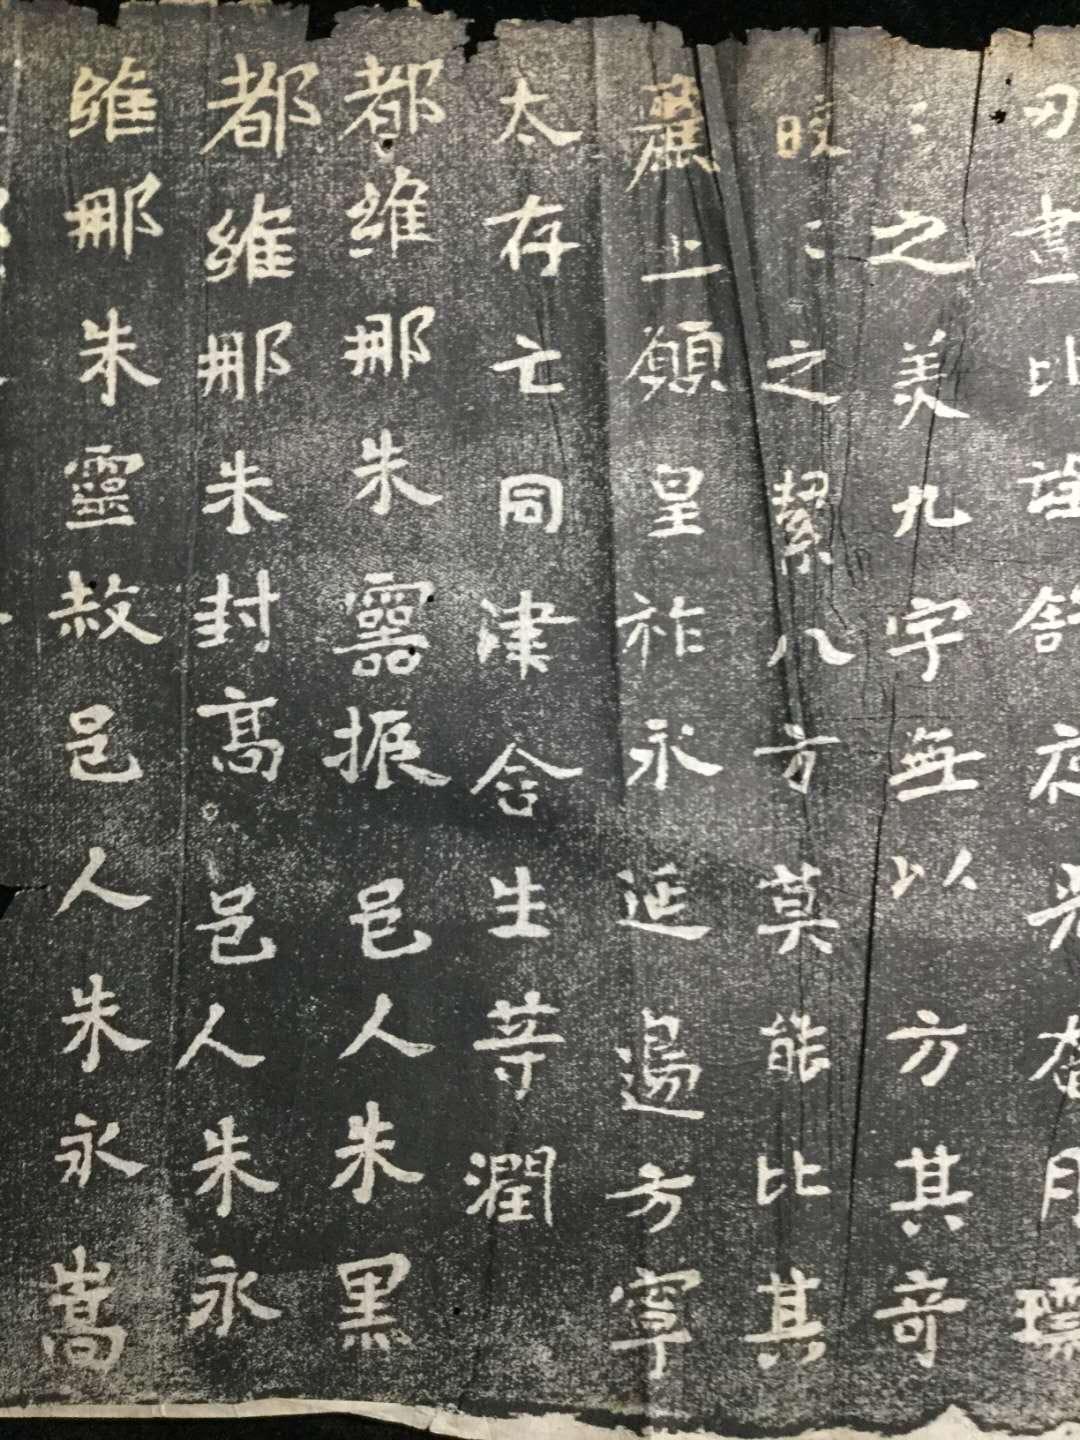 毋畫比謹舒夜光
〻之美九宇無以方其奇
皎〻之絜八方莫能比其
藨上願皇祚永延邊方寧
太存亡同津含生䓁潤
都維那朱靈振邑人朱黑
都維那朱封高邑人朱永
維那朱靈赦邑人朱永嵩